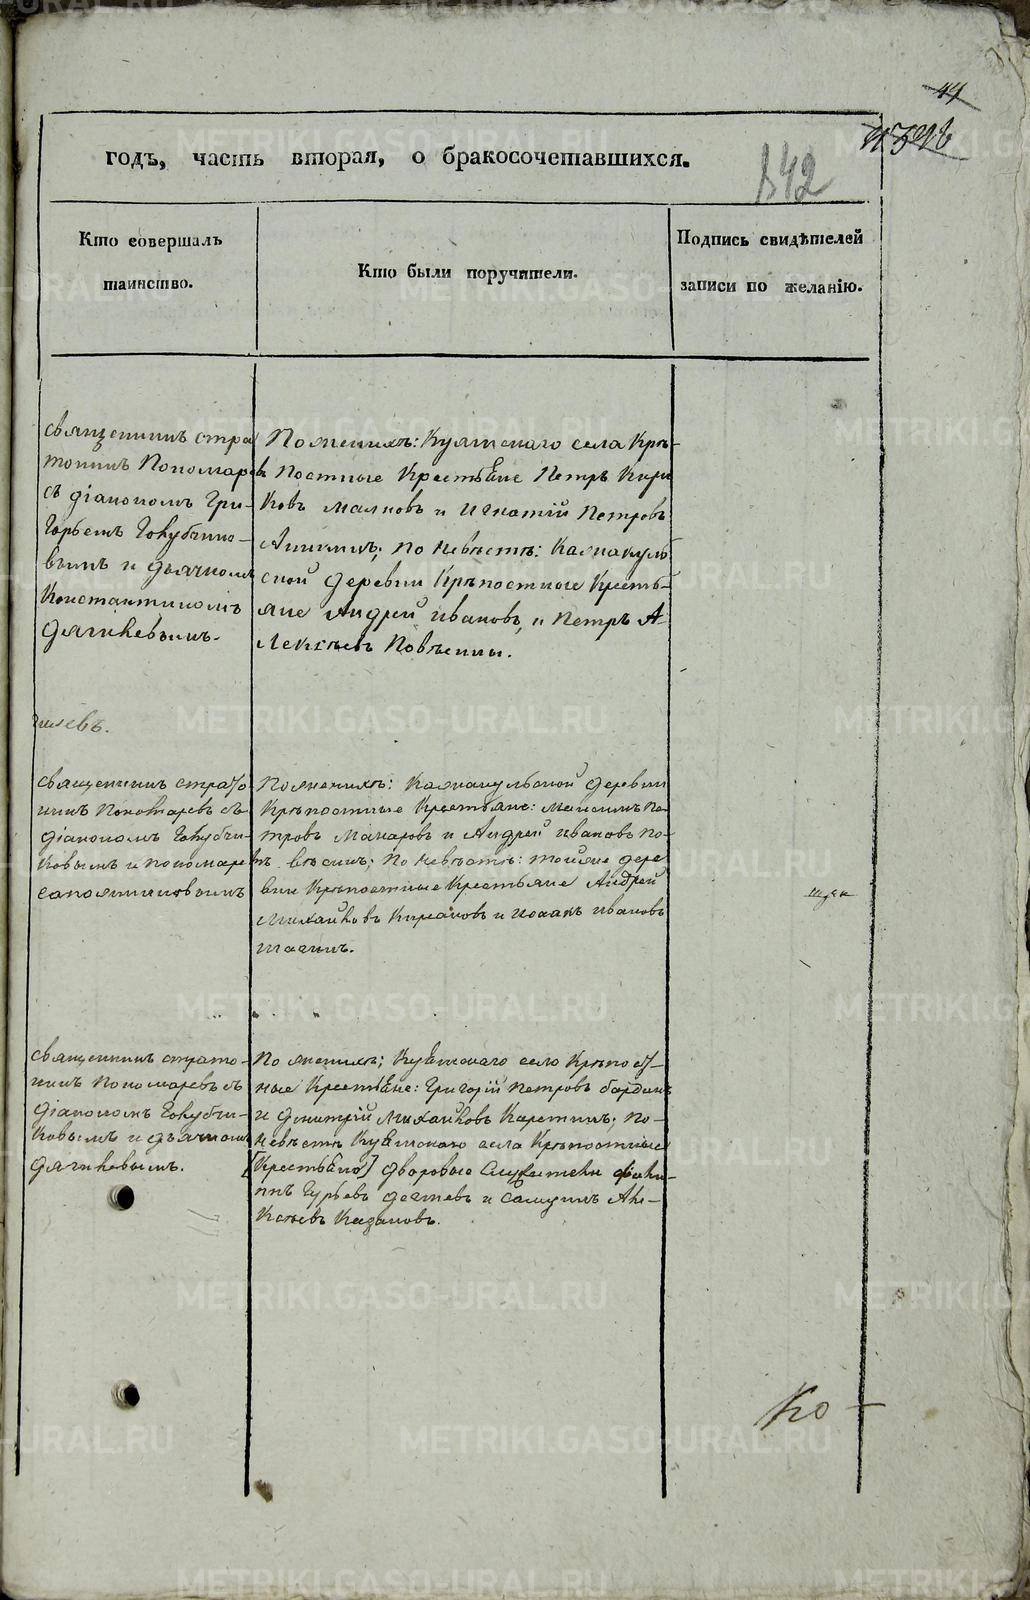 44
годъ, часть вторая, о бракосочетавшихся.
142
Кто совершалъ
таинство.
Кто были поручители.
Подпись свидѣтелей
записи по желанію.
священникъ Стра
тоникъ Пономарев
съ діакономъ Гри-
горьемъ Голубчико-
вымъ и дьячкомъ
Константиномъ
Дягилевымъ.
По женихѣ: Куяшскаго села Крѣ-
постные Крестьяне Петръ Кири
ковъ Малковъ и Игнатій Петровъ
Аникинъ; по невѣстѣ: Казнакуль
ской деревни Крѣпостные Кресть-
яне Андрей Ивановъ, и Петръ А-
лексѣевъ Повѣнины.
гилевъ.
священникъ Страто
никъ Пономаревъ съ
діакономъ Голубчи-
ковымъ и пономаре
Сапожниковымъ
По женихѣ: Казнакульской деревни
Крѣпостные Крестьяне: Максимъ Пе-
тровъ Макаровъ и Андрей Ивановъ По-
по невѣстѣ: тойже дере
вни Крѣпостные Крестьяне Андрей
Михайловъ и Исаакъ Ивановъ
священникъ Страто-
никъ Пономаревъ съ
діакономъ Голубчи-
ковымъ и дьячкомъ
Дягилевымъ.
По женихѣ; Куяшскаго село Крѣпост-
ные Крестьяне: Григорій Петровъ
и Дмитрій Михайловъ Каретинъ; по-
невѣстѣ Куяшскаго села Крѣпостные
[Крестьяне] дворовые Служители Фили-
ппъ Гурьевъ и Самуилъ Але-
ксѣевъ Казаковъ.
Ко-
METRIKI.GASO-URAL.RU